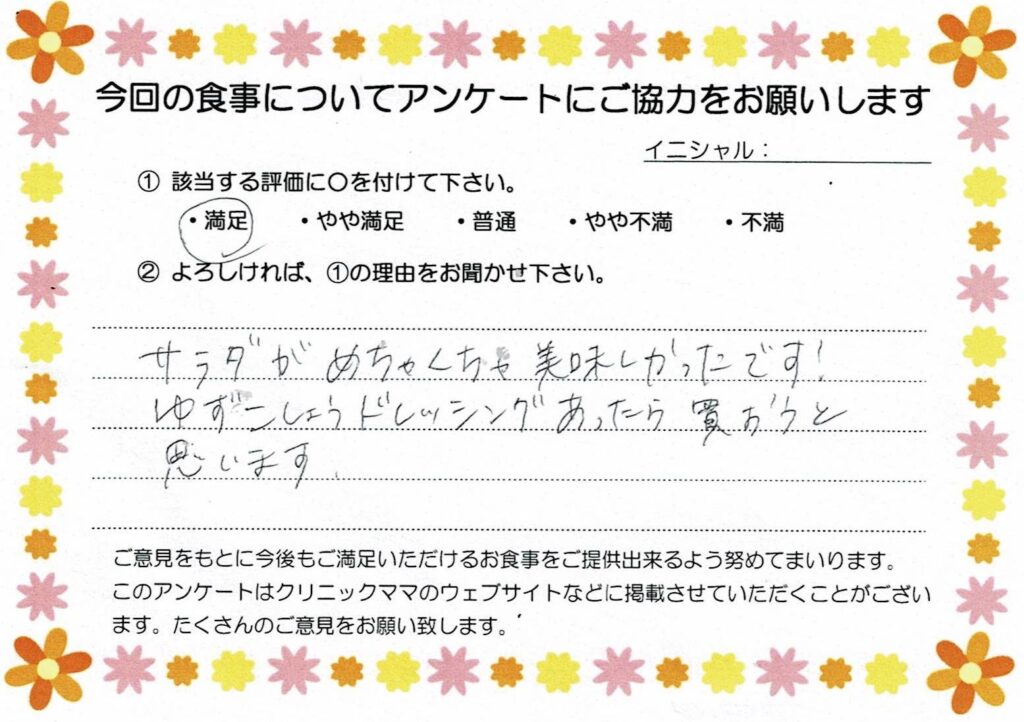 今回の食事についてアンケートにご協力をお願いします
イニシャル：
① 該当する評価に〇を付けて下さい。
・満足 ・やや満足 ・普通 ・やや不満 ・不満
② よろしければ、①の理由をお聞かせ下さい。
サラダが めちゃくちゃ 美味しかったです!
ゆずこしょうドレッシングあったら 買おうと
思います.
ご意見をもとに今後もご満足いただけるお食事をご提供出来るよう努めてまいります。
このアンケートはクリニックママのウェブサイトなどに掲載させていただくことがござい
ます。たくさんのご意見をお願い致します。